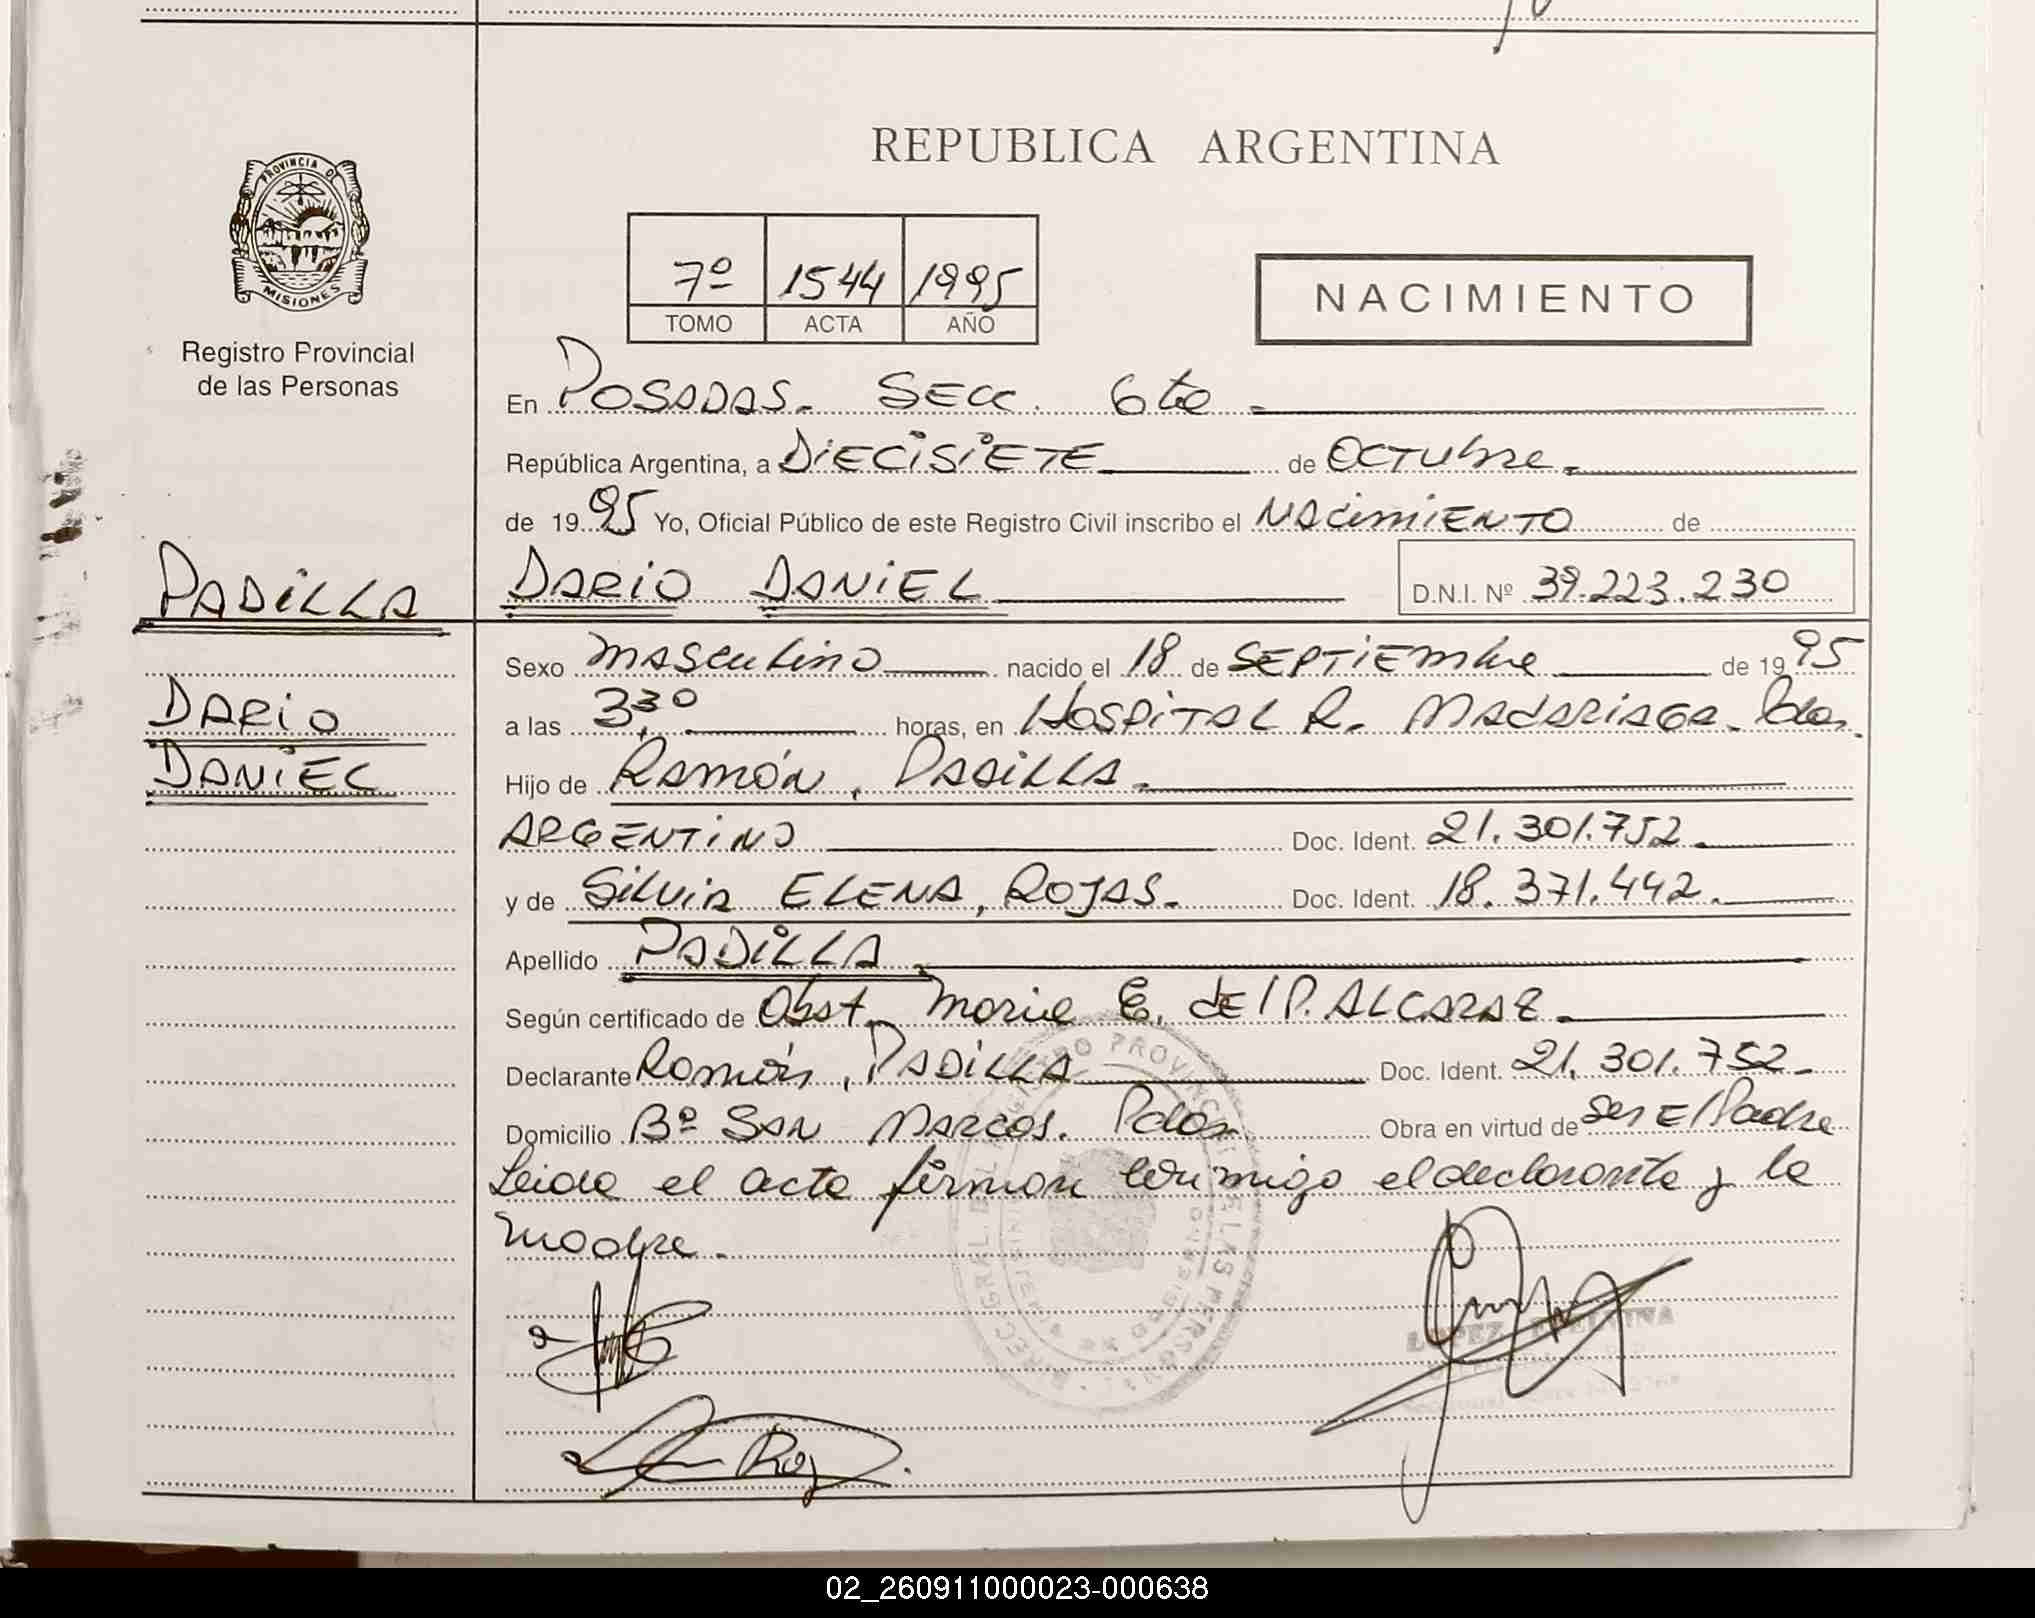 REPUBLICA ARGENTINA
PROVINCIA DE
MISIONES
Registro Provincial
de las Personas
7º 1544 1995
TOMO ACTA AÑO
NACIMIENTO
En POSADAS. SECC. 6ta
República Argentina, a DIECISIETE de OCTUbre
de 1995 Yo, Oficial Público de este Registro Civil inscribo el NACimiENTO de
PADILLA DARIO DANIEL D.N.I. Nº 39.223.230
Sexo mASCulino nacido el 18 de SEPTIEmbre de 1995
DARIO
a las 3,30 horas, en HOSPITAL R. MADARIAGA. Pdas.
DANIEL
Hijo de RAMÓN, PADILLA.
ARGENTINO Doc. Ident. 21.301.752
y de SILVIA ELENA, ROJAS. Doc. Ident. 18.371.442.
Apellido PADILLA
Según certificado de Obst. Maria E. dEl P. ALCARAZ
Declarante Ramón, PADILLA Doc. Ident. 21.301.752
Domicilio Bº SAN MARCOS. Pdas Obra en virtud de Ser El Padre
Leida el acta firman conmigo el declarante y la
madre.
LOPEZ
02_260911000023-000638